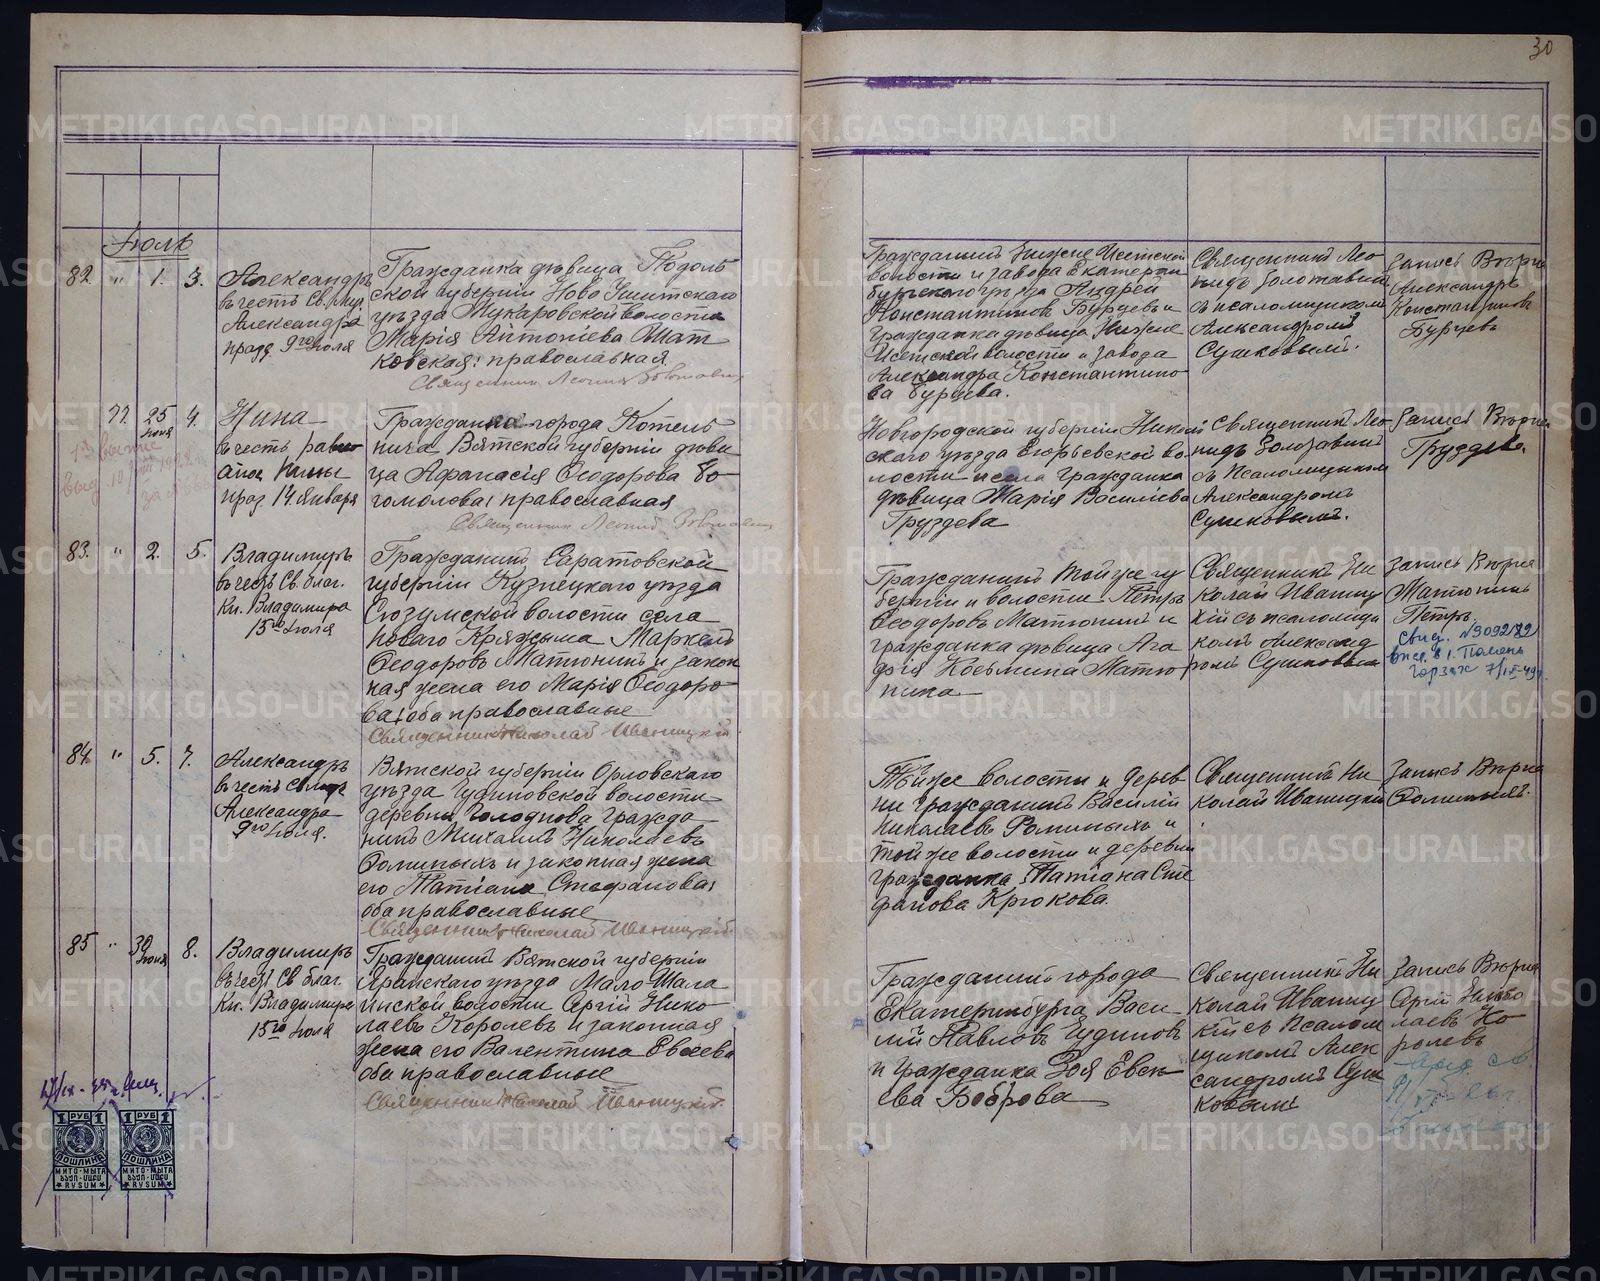 30
Іюль
82. " 1. 3.
Александръ
въ честь Св. Муч.
Александра
празд. 9го Іюля
Гражданка дѣвица Подоль
ской губерніи Ново Ушитскаго
уѣзда Мукаровской волости
Марія Антоніева Шат
ковская; православная
Священникъ Леонидъ
Гражданинъ Нижне Исетской
волости и завода Екатерин
бургскаго уѣзда Андрей
Константиновъ Бурцевъ и
гражданка дѣвица Нижне
Исетской волости и завода
Александра Константино
ва Бурцева.
Священникъ Лео
нидъ
съ псаломщикомъ
Александромъ
Сушковымъ.
Запись Вѣрна
Александръ
Константиновъ
Бурцевъ
77. 25 Іюня 4.
Нина
въ честь равно
апос. Нины
празд. 14 Января
Гражданка города Котель
нича Вятской губерніи дѣви
ца Афанасія Ѳеодорова Бо
гомолова; православная
Священникъ Леонидъ
Новгородской губерніи
скаго уѣзда Егорьевской во
лости и села гражданка
дѣвица Марія Васильева
Груздева
Священникъ Лео
нидъ
съ Псаломщикомъ
Александромъ
Сушковымъ.
Запись Вѣрна
Груздева.
83. " 2. 5.
Владимиръ
въ честь Св. благ.
Кн. Владимира
15го Іюля
Гражданинъ Саратовской
губерніи Кузнецкаго уѣзда
Сюзумской волости села
Новаго Кряжыма Маркелъ
Ѳеодоровъ Матюнинъ и закон
ная жена его Марія Ѳеодоро
ва; оба православные
Священникъ Николай Иваницкій.
Гражданинъ той же гу
берніи и волости Петръ
Ѳеодоровъ Матюнинъ и
гражданка дѣвица Ага
фія Косьмина Матю
нина
Священникъ Ни
колай Иваниц
кій съ псаломщи
комъ Александ
ромъ Сушковымъ
Запись Вѣрна
Матюнинъ
Петръ.
84. " 5. 7.
Александръ
въ честь Св. Муч.
Александра
9го Іюля.
Вятской губерніи Орловскаго
уѣзда Чудиновской волости
деревни Голоднова гражда
нинъ Михаилъ Николаевъ
Ѳоминыхъ и законная жена
его Татіана Стефанова;
оба православные
Священникъ Николай Иваницкій.
Той же волости и дерев
ни гражданинъ Василій
Николаевъ Ѳоминыхъ и
той же волости и деревни
гражданка Татіана Сте
фанова Крюкова.
Священникъ Ни
колай Иваницкій
Запись Вѣрна
Ѳоминыхъ.
85 " 30 Іюня 8.
Владимиръ
въ честь Св. благ.
Кн. Владимира
15го Іюля
Гражданинъ Вятской губерніи
Яранскаго уѣзда Мало-Шала
инской волости Сергій Нико
лаевъ Королевъ и законная
жена его Валентина Евсеева
оба православные
Священникъ Николай Иваницкій.
Гражданинъ города
Екатеринбурга Васи
лій Павловъ Чудиновъ
и гражданка Зоя Евсе
ева Боброва
Священникъ Ни
колай Иваниц
кій съ Псалом
щикомъ Алек
сандромъ Суш
ковымъ
Запись Вѣрна
Сергій Нико
лаевъ Ко
ролевъ
1 РУБ 1
ПОШЛИНА
МИТО-МЫТА
RÝSUM
1 РУБ 1
ПОШЛИНА
МИТО-МЫТА
RÝSUM
METRIKI.GASO-URAL.RU